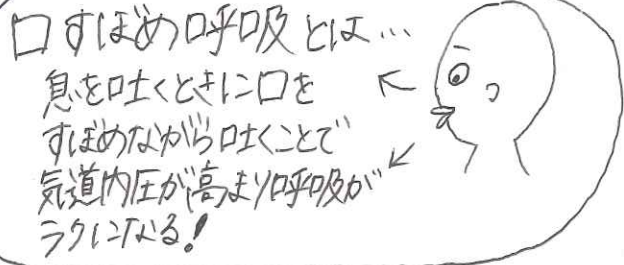 口すぼめ呼吸とは…
息を吐くときに口を
すぼめながら吐くことで
気道内圧が高まり呼吸が
ラクになる!